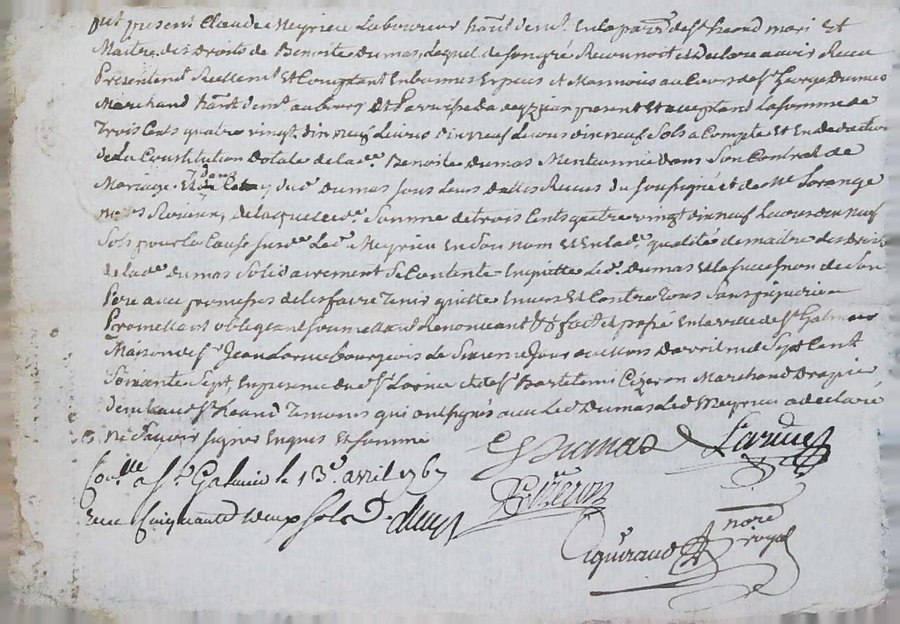 present Claude Neyrieu Laboureur habt demt En la parse de St heand mari Et
Maitre des Droits de Benoite Dumas, Lequel de son gré Reconnoit et declare avoir Recu
Presentemt Reellemt Et Comptant En bonnes Especes et Monnoies au Cours de Sr George Dumas
Marchand habt demt au bourg Et Parroisse present Et acceptant La somme de
Trois Cents quatre vingt dix neuf Livres dix neuf Sols a Compte Et En deduction
de La Constitution Dotale de lade Benoite Dumas Mentionnée dans Son Contrat de
Mariage Dumas sous Leurs dattes Recus du soussigné et de Me Lorange
nores Roiaux, de laquelle de Somme de trois Cents quatre vingt dix neuf Livres dix neuf
Sols pour la Cause susde Led Neyrieu En son nom Et En lade qualité de maitre des Droits
de lade Dumas Solidairement Se Contente En quitte Led Dumas Et la succession de Son
Pere avec promesses de les faire Tenir quitte Envers Et Contre Tous Sans prejudice
Promettant obligeant soumettant Renonceant fait et passé En la ville de St Galmier
Maison de Sr Jean Larue bourgeois Le Sixieme Jour du Mois Davril mil Sept Cent
Soixante Sept En presence dud Sr Larue et de Sr Bartelemi Cizeron Marchand Drapier
demt aud St heand Temoins qui ont signés avec Led Dumas Led Neyrieu a declaré
Ne Scavoir Signer Enquis Et sommé
Dumas Larue
Con.lle a St Galmier le 13e avril 1767
Cizeron
Recu Cinquante Sols
nore
royal